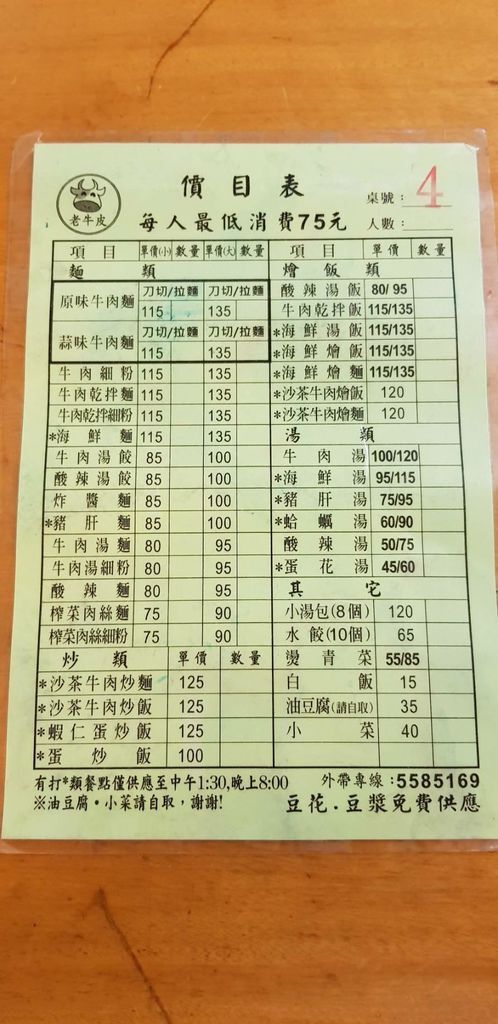 價目表
老牛皮
桌號： 4
每人最低消費75元 人數：
項目 單價(小) 數量 單價(大) 數量
麵類
原味牛肉麵 刀切/拉麵 刀切/拉麵
115 135
蒜味牛肉麵 刀切/拉麵 刀切/拉麵
115 135
牛肉細粉 115 135
牛肉乾拌麵 115 135
牛肉乾拌細粉 115 135
*海鮮麵 115 135
牛肉湯餃 85 100
酸辣湯餃 85 100
炸醬麵 85 100
*豬肝麵 85 100
牛肉湯麵 80 95
牛肉湯細粉 80 95
酸辣麵 80 95
榨菜肉絲麵 75 90
榨菜肉絲細粉 75 90
炒類 單價 數量
*沙茶牛肉炒麵 125
*沙茶牛肉炒飯 125
*蝦仁蛋炒飯 125
*蛋炒飯 100
項目 單價 數量
燴飯類
酸辣湯飯 80/95
牛肉乾拌飯 115/135
*海鮮湯飯 115/135
*海鮮燴飯 115/135
*海鮮燴麵 115/135
*沙茶牛肉燴飯 120
*沙茶牛肉燴麵 120
湯類
牛肉湯 100/120
*海鮮湯 95/115
*豬肝湯 75/95
*蛤蠣湯 60/90
酸辣湯 50/75
*蛋花湯 45/60
其它
小湯包(8個) 120
水餃(10個) 65
燙青菜 55/85
白飯 15
油豆腐(請自取) 35
小菜 40
有打*類餐點僅供應至中午1:30,晚上8:00
※油豆腐•小菜請自取，謝謝!
外帶專線：5585169
豆花．豆漿免費供應